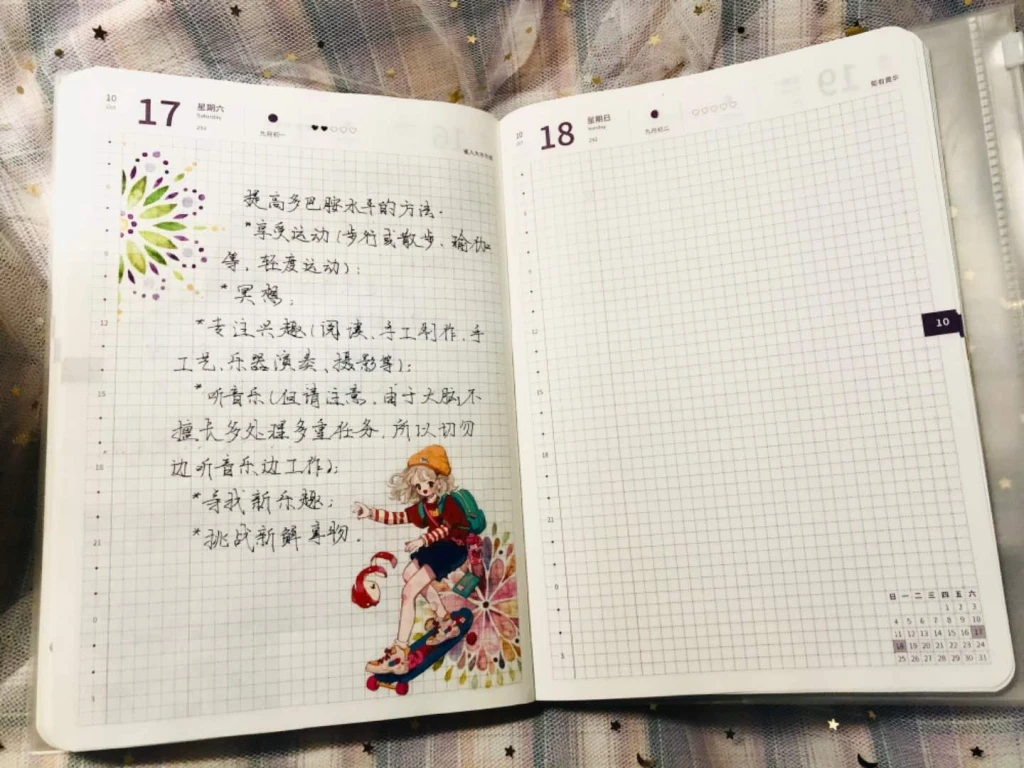 10
17
星期六
Saturday
九月初一
提高多巴胺水平的方法.
*享受运动(步行或散步、瑜伽
等,轻度运动);
*冥想;
*专注兴趣(阅读、手工制作、手
工艺、乐器演奏、摄影等);
*听音乐(但请注意,由于大脑不
擅长多处理多重任务,所以切勿
边听音乐边工作);
*寻找新乐趣;
*挑战新鲜事物.
12
15
18
21
0
3
10
18
星期日
Sunday
九月初二
12
15
18
21
0
3
10
日 一 二 三 四 五 六
1 2 3
4 5 6 7 8 9 10
11 12 13 14 15 16 17
18 19 20 21 22 23 24
25 26 27 28 29 30 31